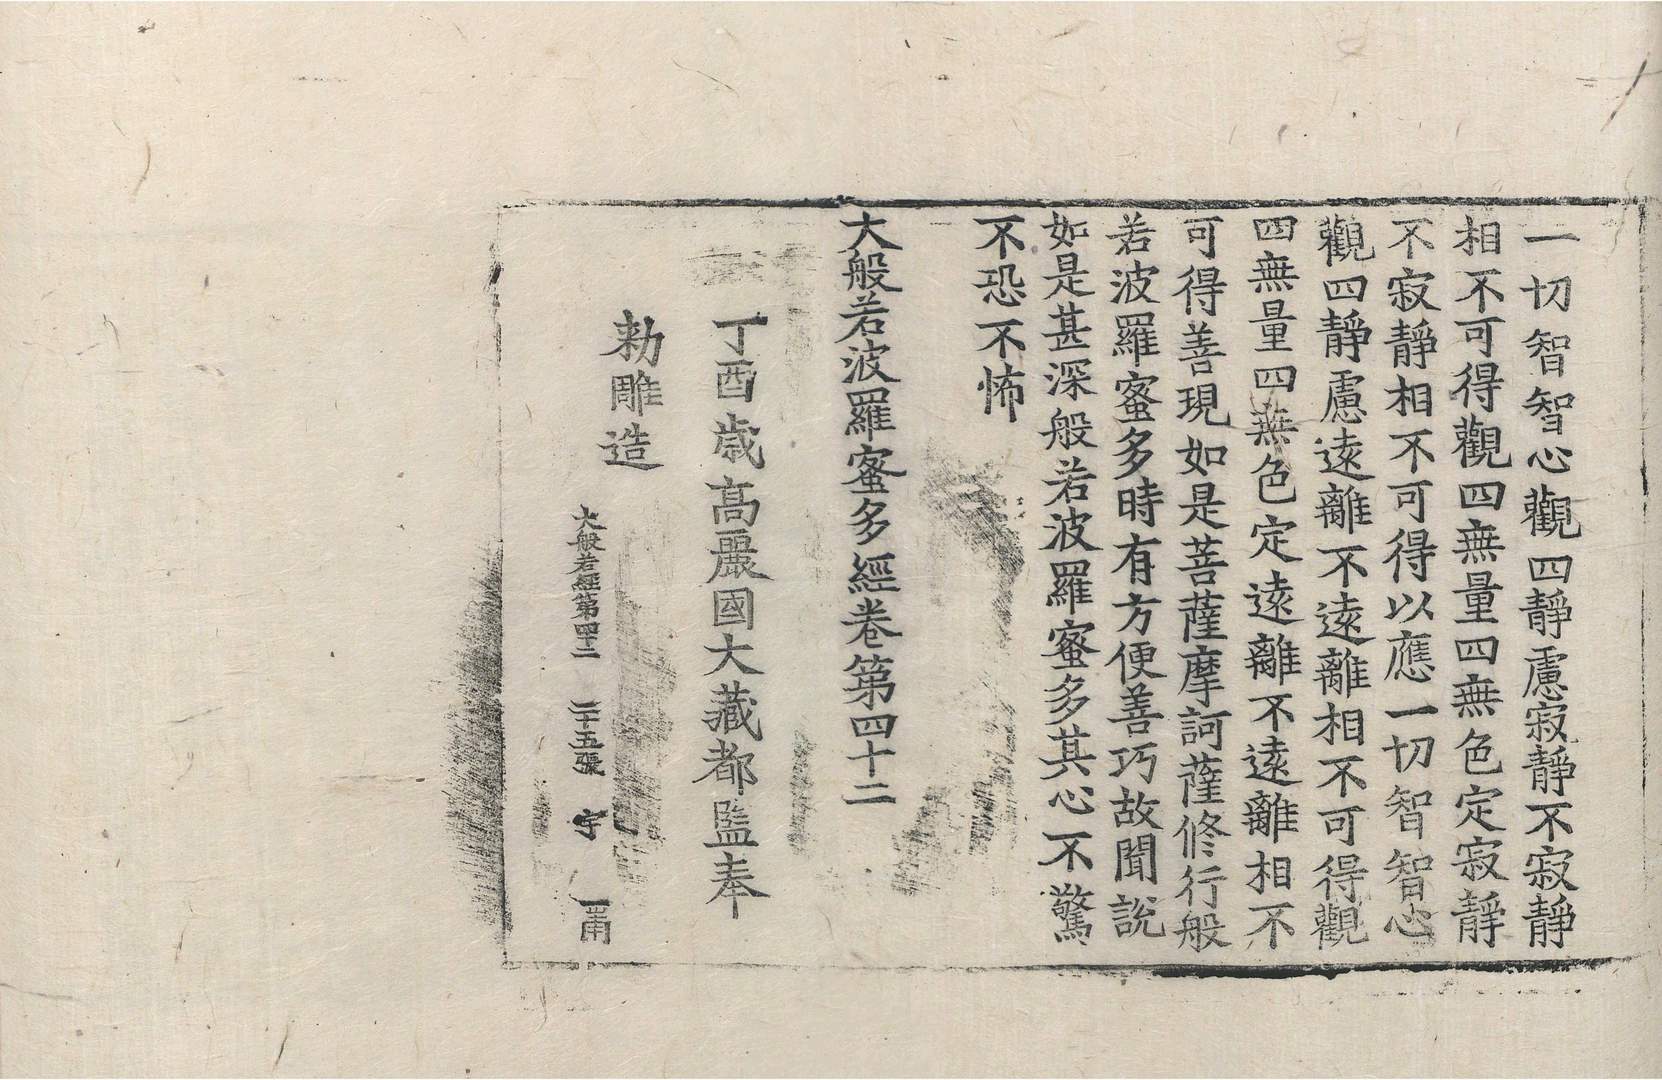 一切智智心觀四靜慮寂靜不寂靜
相不可得觀四無量四無色定寂靜
不寂靜相不可得以應一切智智心
觀四靜慮遠離不遠離相不可得觀
四無量四無色定遠離不遠離相不
可得善現如是菩薩摩訶薩修行般
若波羅蜜多時有方便善巧故聞說
如是甚深般若波羅蜜多其心不驚
不恐不怖
大般若波羅蜜多經卷第四十二
丁酉歲高麗國大藏都監奉
勅雕造
大般若經第四十二 二十五張 宇